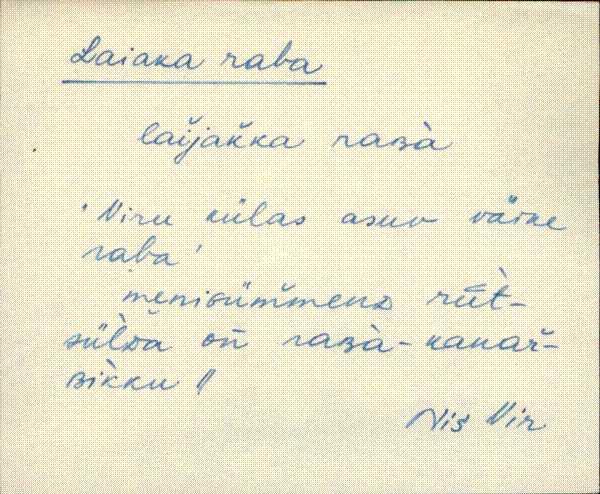 Laiaka raba
laĭjaǩka raʙà
'Viru külas asuv väike
raba'
menisŭm̆menᴅ rùt-
sùlᴅa on̆ raʙà-kanar̆-
ʙìkku ||
Nis Vir